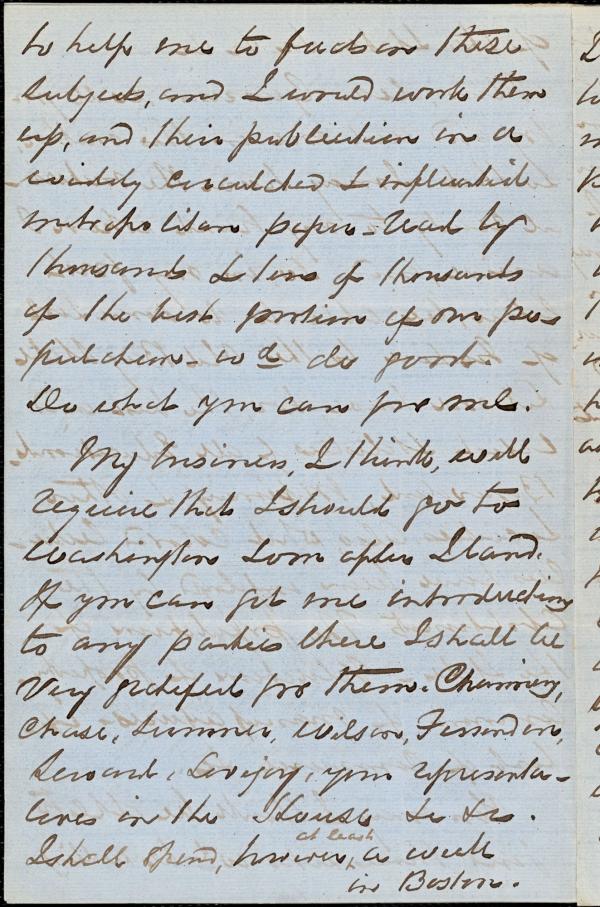 to help me to facts on these
subjects, and I would work them
up, and their publication in a
widely circulated & influential
metropolitan paper - read by
thousands & tens of thousands
of the best portion of our po-
pulation - wd do good.
Do what you can for me.
My business, I think, will
require that I should go to
Washington soon after I land.
If you can get me introductions
to any parties there I shall be
very grateful for them. Channing,
Chase, Sumner, Wilson, Fessenden,
Seward, Lovejoy, your representa-
tives in the House &c &c.
I shall spend, however, at least a week
in Boston.